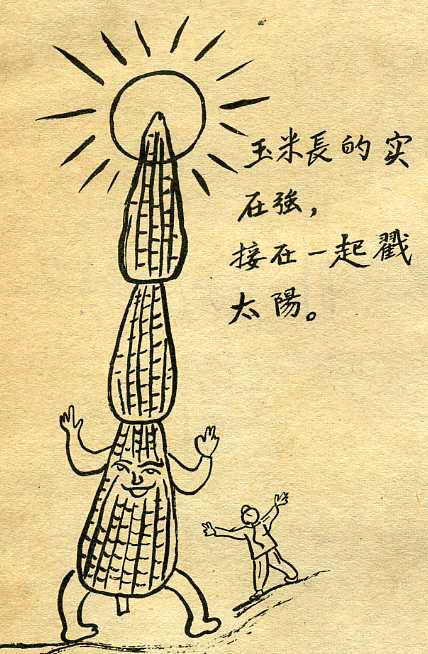 玉米長的实
在強，
接在一起戳
太陽。